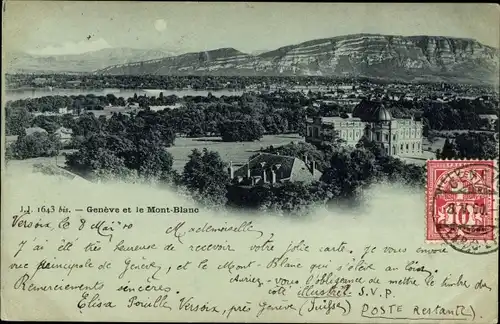 J.J. 1643 bis. - Genève et le Mont-Blanc
Versoix le 8 Mai 00 Mademoiselle
J'ai été très heureuse de recevoir votre jolie carte. Je vous envoie
vue principale de Genève, et le Mont-Blanc qui s'élève au loin.
Remerciements sincères. Auriez-vous l'obligeance de mettre le timbre du
côté illustré S.V.P.
Elisa Versoix, près Genève (Suisse)
(POSTE Restante)
10